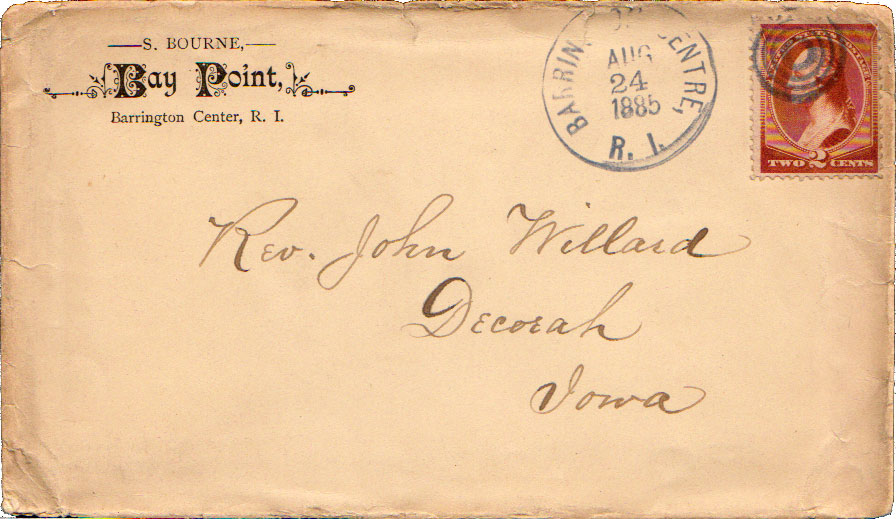 S. BOURNE,
Bay Point,
Barrington Center, R. I.
BARRIN CENTRE,
AUG
24
1885
R. I.
TWO 2 CENTS
Rev. John Willard
Decorah
Iowa